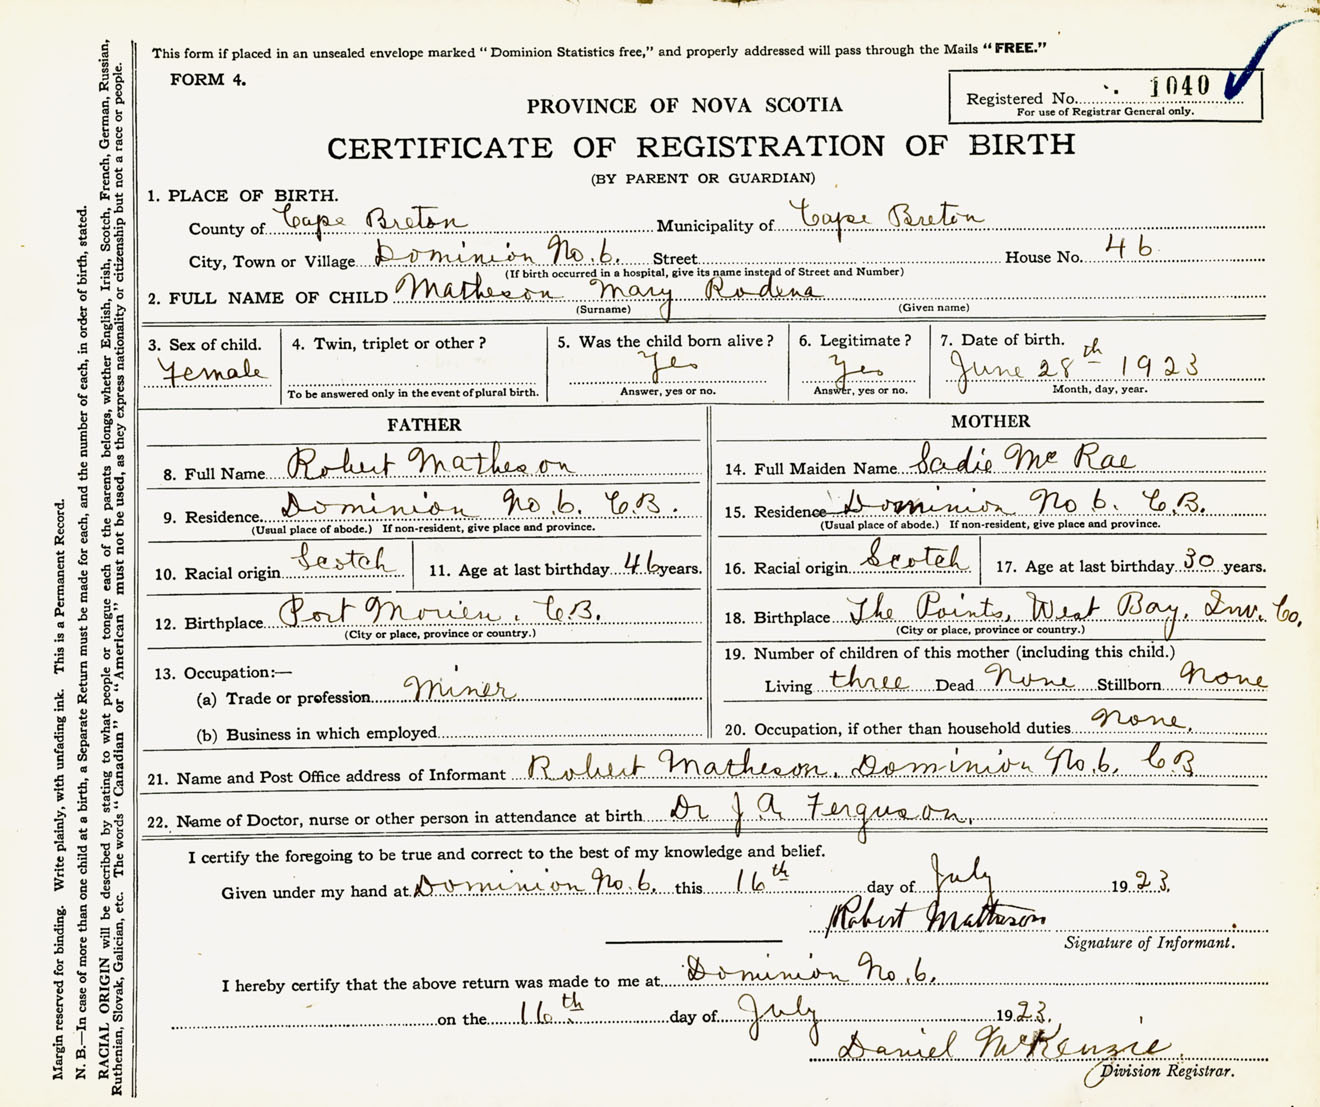 This form if placed in an unsealed envelope marked "Dominion Statistics free," and properly addressed will pass through the Mails "FREE."
FORM 4.
Registered No. 1040
For use of Registrar General only.
PROVINCE OF NOVA SCOTIA
CERTIFICATE OF REGISTRATION OF BIRTH
(BY PARENT OR GUARDIAN)
1. PLACE OF BIRTH.
County of Cape Breton Municipality of Cape Breton
City, Town or Village Dominion No. 6. Street House No. 46
(If birth occurred in a hospital, give its name instead of Street and Number)
2. FULL NAME OF CHILD Matheson Mary Rodena
(Surname) (Given name)
3. Sex of child. Female
4. Twin, triplet or other?
To be answered only in the event of plural birth.
5. Was the child born alive? Yes
Answer, yes or no.
6. Legitimate? Yes
Answer, yes or no.
7. Date of birth.
June 28th 1923
Month, day, year.
FATHER
8. Full Name Robert Matheson
9. Residence Dominion No. 6. C.B.
(Usual place of abode.) If non-resident, give place and province.
10. Racial origin Scotch 11. Age at last birthday 46 years.
12. Birthplace Port Morien, C.B.
(City or place, province or country.)
13. Occupation:—
(a) Trade or profession Miner
(b) Business in which employed
MOTHER
14. Full Maiden Name Sadie Mc Rae
15. Residence Dominion No 6. C.B.
(Usual place of abode.) If non-resident, give place and province.
16. Racial origin Scotch 17. Age at last birthday 30 years.
18. Birthplace The Points, West Bay, Inv. Co.
(City or place, province or country.)
19. Number of children of this mother (including this child.)
Living three Dead None Stillborn None
20. Occupation, if other than household duties None.
21. Name and Post Office address of Informant Robert Matheson. Dominion No. 6. C.B
22. Name of Doctor, nurse or other person in attendance at birth Dr J. A. Ferguson.
I certify the foregoing to be true and correct to the best of my knowledge and belief.
Given under my hand at Dominion No. 6. this 16th day of July 1923.
Robert Matheson
Signature of Informant.
I hereby certify that the above return was made to me at Dominion No. 6.
on the 16th day of July 1923.
Daniel McKenzie.
Division Registrar.
Margin reserved for binding. Write plainly, with unfading ink. This is a Permanent Record.
N. B.—In case of more than one child at a birth, a Separate Return must be made for each, and the number of each, in order of birth, stated.
RACIAL ORIGIN will be described by stating to what people or tongue each of the parents belongs, whether English, Irish, Scotch, French, German, Russian,
Ruthenian, Slovak, Galician, etc. The words "Canadian" or "American" must not be used, as they express nationality or citizenship but not a race or people.